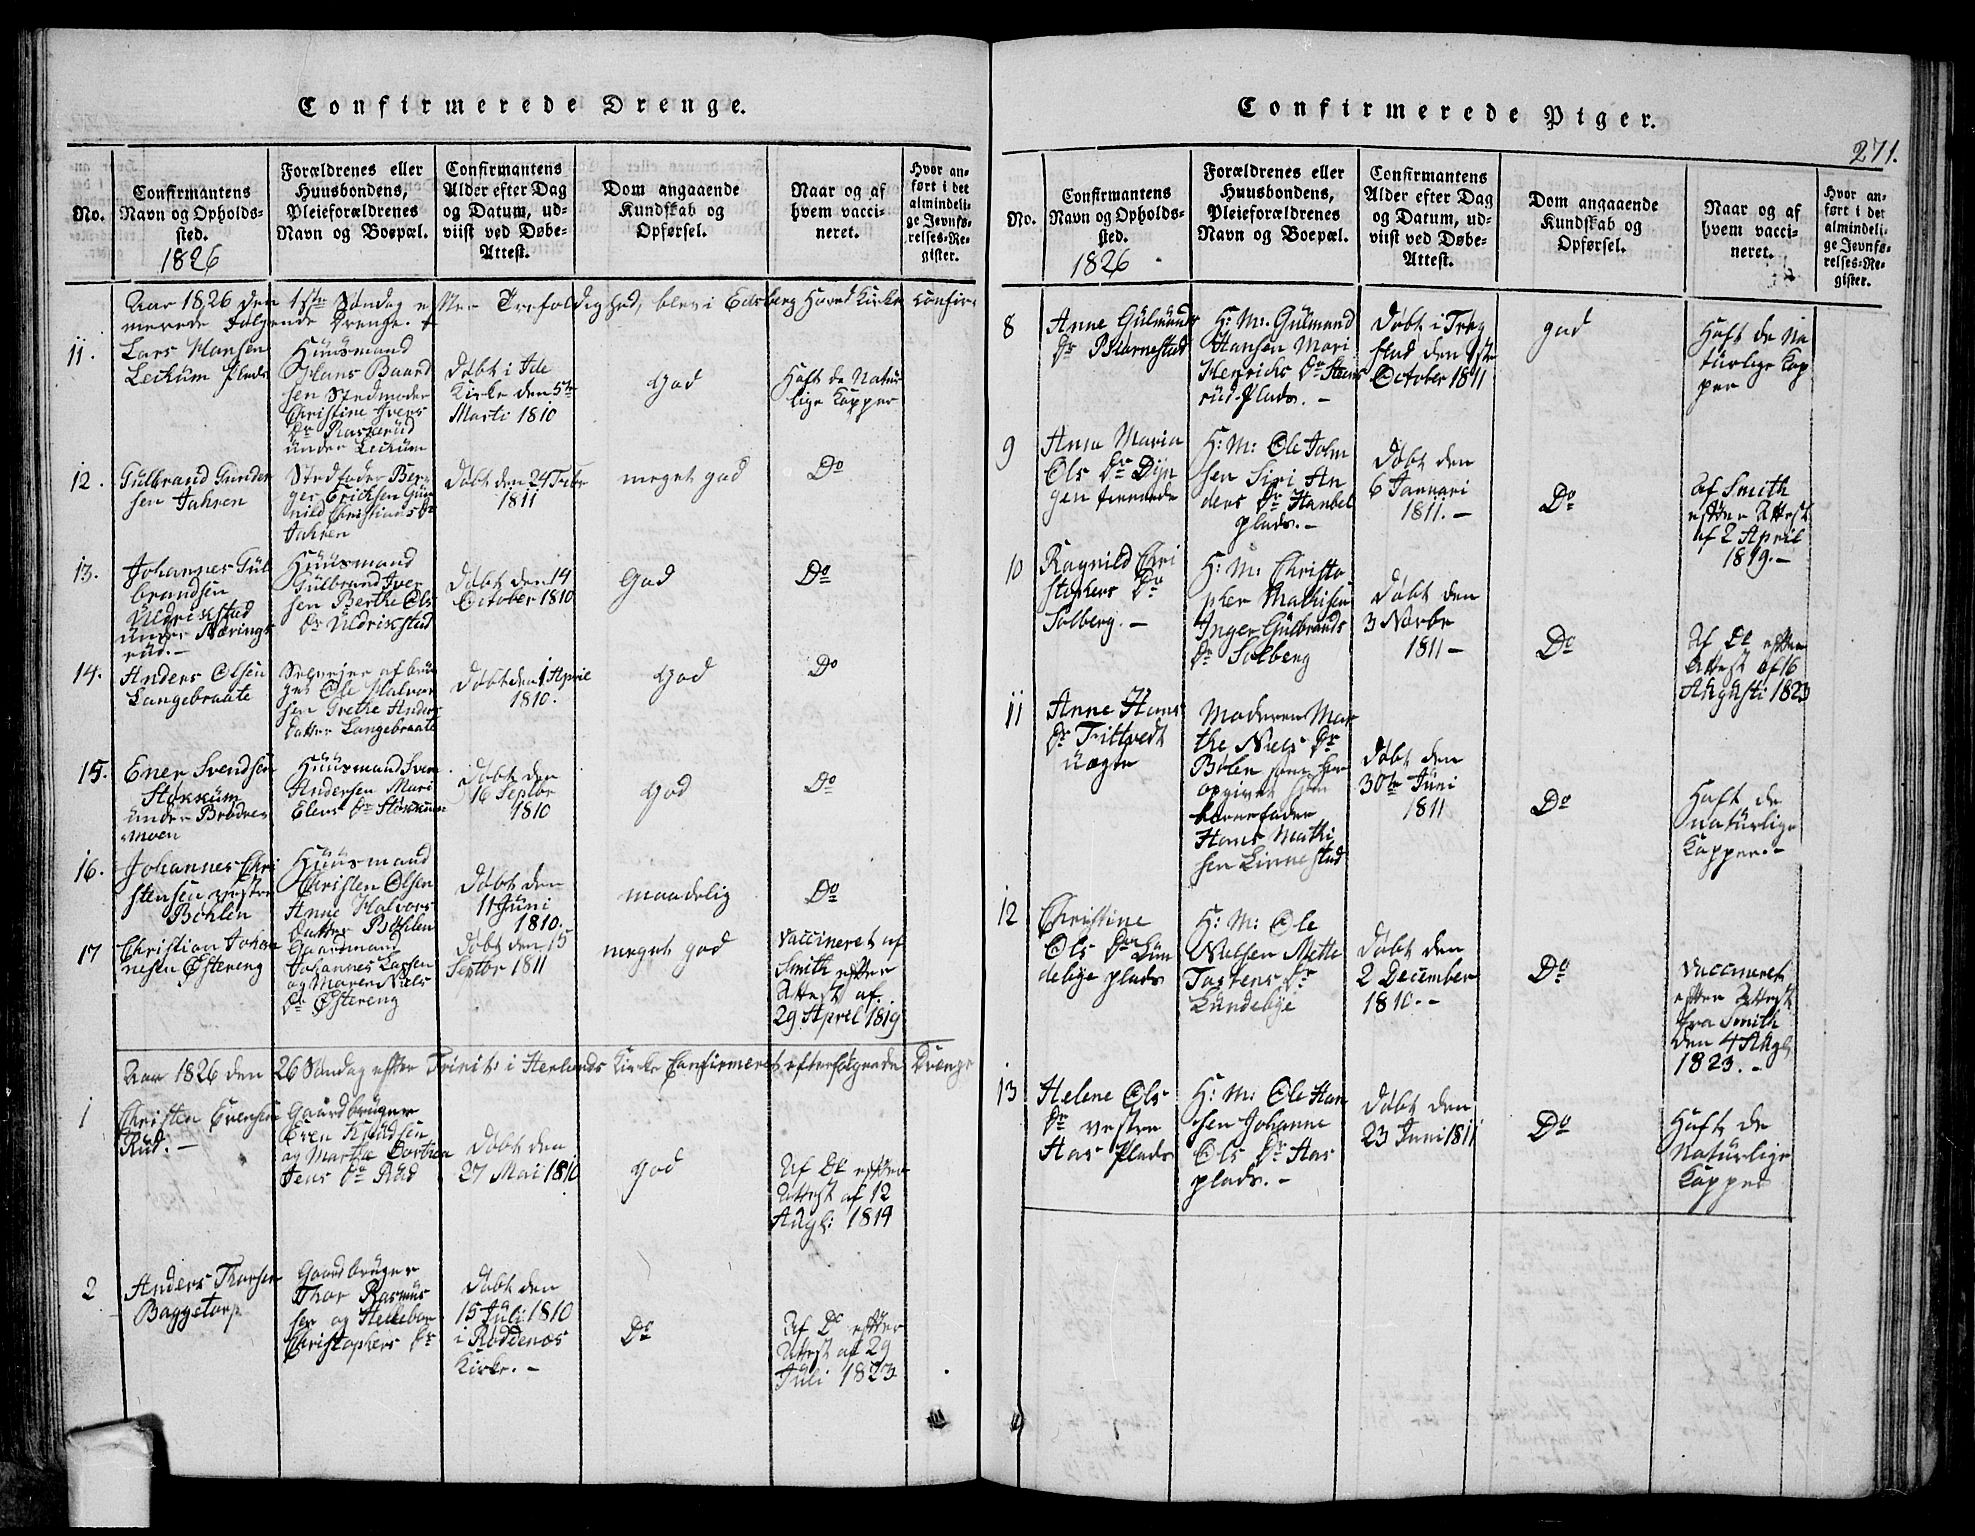 Confirmerede Drenge.
No.
Confirmantens
Navn og Opholds-
sted.
1826
Forældrenes eller
Huusbondens,
Pleieforældrenes
Navn og Boepæl.
Confirmantens
Alder efter Dag
og Datum, ud-
viist ved Døbe-
Attest.
Dom angaaende
Kundskab og
Opførsel.
Naar og af
hvem vacci-
neret.
Hvor an-
ført i det
almindeli-
ge Jevnfø-
relses-Re-
gister.
Aar 1826 den 1ste Søndag efter Trefoldighed, blev i Edsberg Hoved Kirke Confir-
merede følgende Drenge.
11.
Lars Hansen
Leckum plads
Huusmand
Hans Baard
sen Stedmoder
Christine Ivers
Dr Raskerud
under Leckum
Døbt i Ide
Kirke den 5te
Marti 1810
God
Haft de Natur
lige Kopper
12.
Gulbrand Gunder
sen Jahren
Stedfader Ber
ger Erichsen Gun
nild Christians Dr
Jahren
Døbt den 24 Febr
1811
meget god
Do
13.
Johannes Gul
brandsen
Uldrikstad
under Nærings
rud.-
Huusmand
Gulbrand Iver
sen Berthe Ols
Dr Uldrikstad
Døbt den 14
October 1810
God
Do
14.
Anders Olsen
Langebraate
Selveier af brug
get Ole Halvor
sen Grethe Anders
datter Langebraate
Døbt den 1 April
1810.
God
Do
15.
Ener Svendsen
Stokkum
under Brødres
moen
Huusmand Sven
Andersen Mari
Elens Dr Stokkum
Døbt den
16 Septbr
1810
God
Do
16.
Johannes Chri
stensen vestre
Bøhlen
Huusmand
Christen Olsen
Anne Halvors
datter Bøhlen
Døbt den
11 Juni
1810.
maadelig
Do
17
Christian Johan
nesen Østereng
Gaardmand
Johannes Larsen
og Maren Niels
Dr Østereng
Døbt den 15
Septbr 1811
meget god
Vaccineret af
Smith efter
Attest af
29 April 1819
Aar 1826 den 26 Søndag efter Trinit: i Herlands Kirke Confirmeret efterfølgende Drenge
1
Christen Evensen
Rud.-
Gaardbruger
Even Knudsen
og Marthe Dorthea
Jens Dr Rud
Døbt den
27 Mai 1810
God
Af Do efter
Attest af 12
Aug: 1819
2
Anders Thorsen
Baggetorp
Gaardbruger
Thor Rasmus
sen og Hellebor
Christophers Dr
Døbt den
15 Juli 1810
i Røddenæs
Kirke.-
Do
Af Do efter
Attest af 29
Juli 1823
Confirmerede Piger.
271.
No.
Confirmantens
Navn og Opholds-
sted.
1826
Forældrenes eller
Huusbondens,
Pleieforældrenes
Navn og Boepæl.
Confirmantens
Alder efter Dag
og Datum, ud-
viist ved Døbe-
Attest.
Dom angaaende
Kundskab og
Opførsel.
Naar og af
hvem vacci-
neret.
Hvor an-
ført i det
almindeli-
ge Jevnfø-
relses-Re-
gister.
8
Anne Gulmunds
Dr Blarnestad
H: M: Gulmund
Hansen Mari
Henrichs Dr
rud-plads.-
Døbt i Trøg
stad den 1ste
October 1811
god
Haft de Na
turlige Kop
per
9
Anne Maria
Ols Dr Dyn
gen
H: M: Ole John
sen Siri An
ders Dr
plads.-
Døbt den
6 Januari
1811.-
Do
Af Smith
efter Attest
af 2 April
1819.-
10
Ragnild Chri
stophers Dr
Solberg.-
H: M: Christo
pher Mathisen
Inger Gulbrands
Dr Solberg
Døbt den
3 Novbr
1811-
Do
Af Do efter
Attest af 16
Augusti 1823
11
Anne Hans
Dr Trittvedt
uægte
Moderen Mar
the Niels Dr
Bølen som har
opgivet som
barnefader
Hans Mathi
sen Linnestad
Døbt den
30te Juni
1811
Do
Haft de
naturlige
Kopper.-
12
Christine
Ols Dr Lun
debye plads
H: M: Ole
Nielsen Mette
Tostens Dr
Lundebye
Døbt den
2 December
1810.-
Do
Vaccineret
efter Attest
fra Smith
den 4 Aug:
1823.-
13
Helene Ols
Dr vestre
Has Plads
H: M: Ole Han
sen Johanne
Ols Dr Has
plads.-
Døbt den
23 Juni 1811
Do
Haft de
Naturlige
Kopper